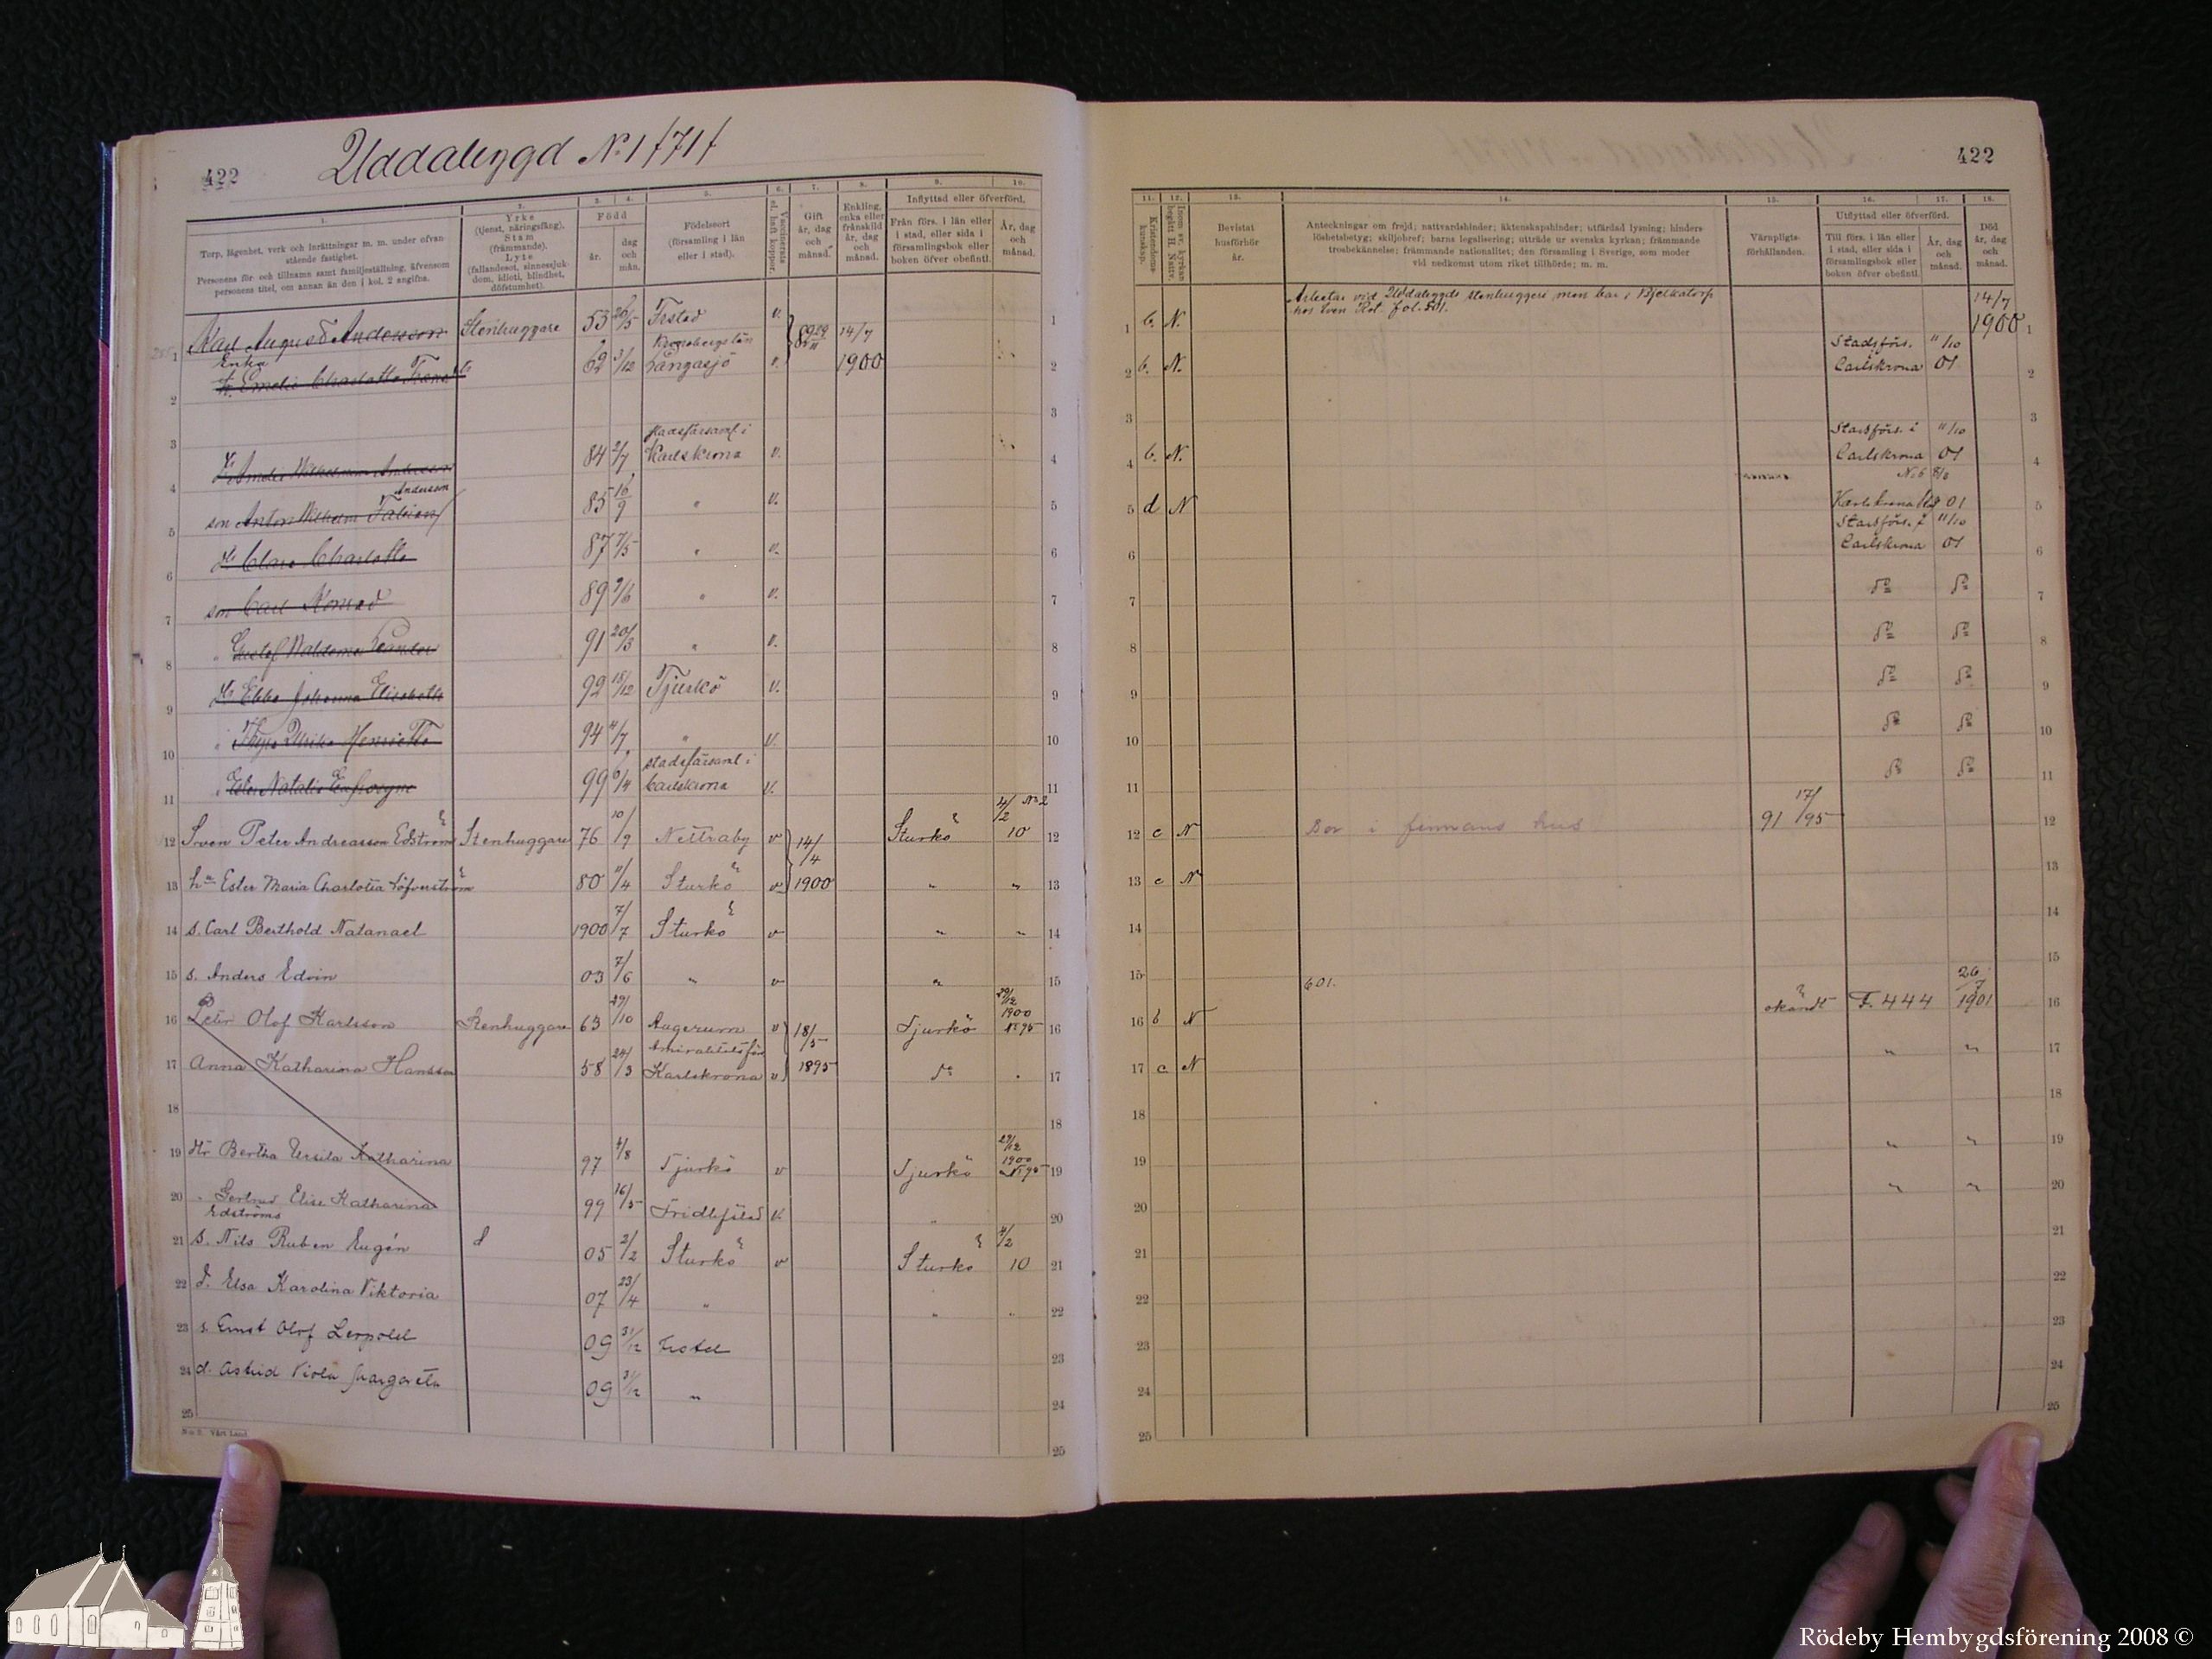 422
Uddabygd No 1/71/
1.
Torp, lägenhet, verk och inrättningar m. m. under ofvanstående fastighet.
Personens för- och tillnamn samt familjeställning, äfvensom personens titel, om annan än den i kol. 2 angifna.
2.
Yrke
(tjenst, näringsfång).
Stam
(främmande).
Lyte
(fallandesot, sinnessjukdom, idioti, blindhet, döfstumhet).
3. 4.
Född
år.
dag och mån.
5.
Födelseort
(församling i län eller i stad).
6.
7.
Gift
år, dag och månad.
8.
Enkling, enka eller frånskild
år, dag och månad.
9. 10.
Inflyttad eller öfverförd.
Från förs. i län eller i stad, eller sida i församlingsbok eller boken öfver obefintl.
År, dag och månad.
1 Karl August Andersson Stenhuggare 53 26/5 Frstad v. 14/7
Enka Kronobergs län
2 62 3/12 Långasjö v. 1900
stadsförsaml i
4 84 2/7 Karlskrona v.
Andersson
5 son Anton Wilhelm Fabian 85 16/9 " v.
6 Clara Charlotta 87 7/5 " v.
7 son Carl Konrad 89 2/6 " v.
8 " Gustaf Waldemar 91 20/3 " v.
9 Ebba Johanna Elisabeth 92 18/12 Tjurkö v.
10 " Ulrika Henrietta 94 4/7 " v.
stadsförsaml i
11 " Ester Natalia 99 6/4 Carlskrona v.
12 Sven Peter Andreasson Edström Stenhuggare 76 10/9 Nettraby v 14/4 Sturkö 4/2 No 2 10
13 hu Ester Maria Charlotta Söfverström 80 11/4 Sturkö v 1900 " "
14 s. Carl Berthold Natanael 1900 7/7 Sturkö v " "
15 s. Anders Edvin 03 7/6 " v "
16 Peter Olof Karlsson Stenhuggare 63 29/10 Augerum v 18/5 Tjurkö 29/12 1900 No 95
Amiralitetsför
17 Anna Katharina Hansson 58 24/3 Karlskrona v 1895 Do "
18
19 Dtr Bertha Ursila Katharina 97 4/8 Tjurkö v Tjurkö 29/12 1900 No 95
20 " Gertrud Elise Katharina 99 16/5 Fridlefstad v. "
Edströms
21 s. Nils Ruben Eugén d 05 2/2 Sturkö v Sturkö 4/2 10
22 d. Elsa Karolina Viktoria 07 23/4 " " "
23 s. Ernst Olof Leopold 09 31/12 Frstad
24 d. Astrid Viola Margareta 09 31/12 "
25
No 2. Vårt Land.
422
11. 12. 13.
Bevistat husförhör år.
14.
Anteckningar om frejd; nattvardshinder; äktenskapshinder; utfärdad lysning; hinderslöshetsbetyg; skiljobref; barns legalisering; utträde ur svenska kyrkan; främmande trosbekännelse; främmande nationalitet; den församling i Sverige, som moder vid nedkomst utom riket tillhörde; m. m.
15.
Värnpligtsförhållanden.
16. 17.
Utflyttad eller öfverförd.
Till förs. i län eller i stad, eller sida i församlingsbok eller boken öfver obefintl.
År, dag och månad.
18.
Död
år, dag och månad.
Arbetar vid Uddabygds stenhuggeri men bor i Bjelkatorp
hos Sven fol. 501.
1 b. N. 14/7 1900
2 b. N. Stadsförs. Carlskrona 11/10 01
3
4 b. N. Stadsförs. i Carlskrona 11/10 01
5 d N Karlskrona No 6 01
6 Stadsförs. i Carlskrona 11/10 01
7 Do Do
8 Do Do
9 Do Do
10 Do Do
11 Do Do
12 c N Bor i finnans hus 91 17/95
13 c N
14
15 601.
16 b N okändt F. 444 26/7 1901
17 c N " "
18
19 " "
20 " "
21
22
23
24
25
Rödeby Hembygdsförening 2008 ©